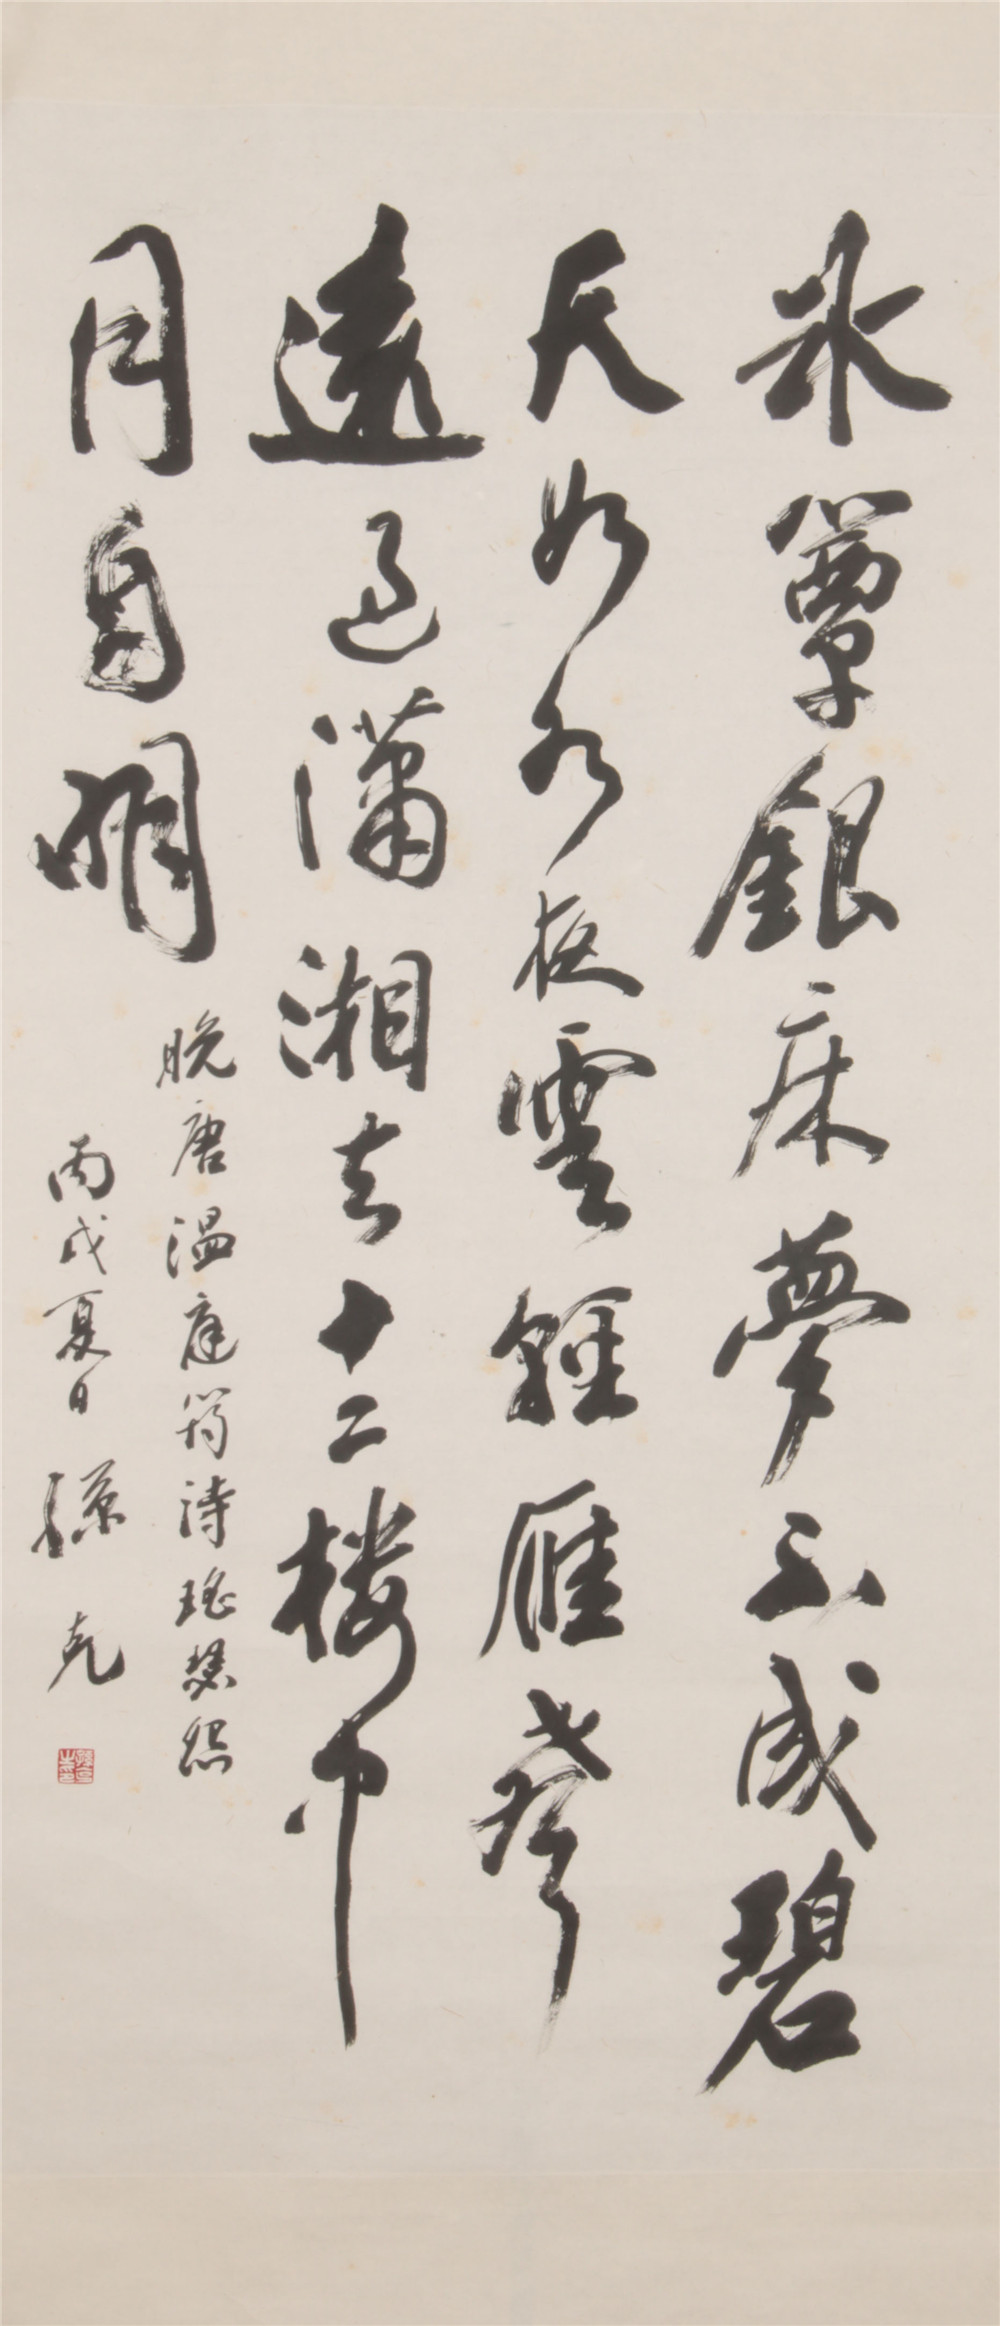 冰簟銀床夢不成碧
天如水夜雲輕雁聲
遠過瀟湘去十二樓中
月自明
晚唐溫庭筠詩瑤瑟怨
丙戌夏日孫克